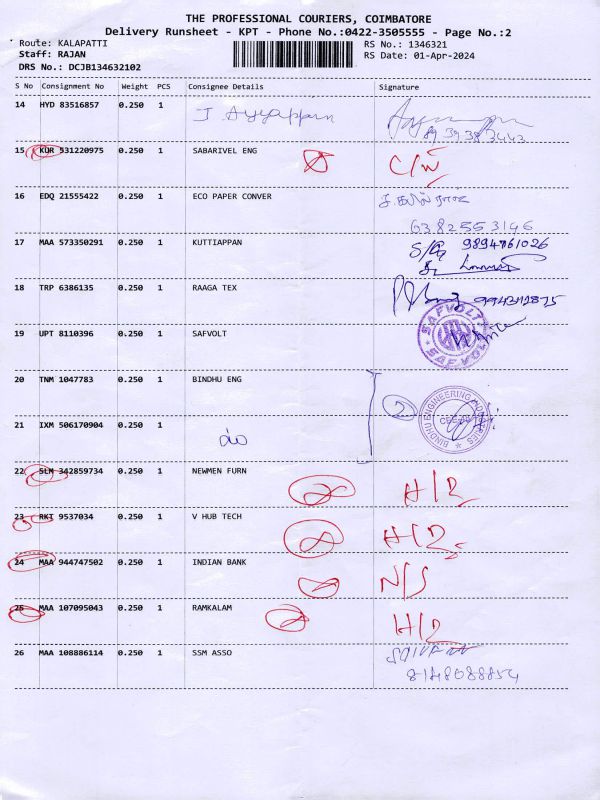 THE PROFESSIONAL COURIERS, COIMBATORE
Delivery Runsheet - KPT - Phone No.:0422-3505555 - Page No.:2
Route: KALAPATTI RS No.: 1346321
Staff: RAJAN RS Date: 01-Apr-2024
DRS No.: DCJB134632102
S No Consignment No Weight PCS Consignee Details Signature
14 HYD 83516857 0.250 1 J. Ayyappan
89 39 38 3443
15 KUR 531220975 0.250 1 SABARIVEL ENG
16 EDQ 21555422 0.250 1 ECO PAPER CONVER
6382553146
17 MAA 573350291 0.250 1 KUTTIAPPAN 9894761026
18 TRP 6386135 0.250 1 RAAGA TEX
19 UPT 8110396 0.250 1 SAFVOLT SAFVOLT
20 TNM 1047783 0.250 1 BINDHU ENG 2 BINDHU ENGINEERING INDUSTRIES
21 IXM 506170904 0.250 1
22 SLM 342859734 0.250 1 NEWMEN FURN H/2
23 RKT 9537034 0.250 1 V HUB TECH H/2
24 MAA 944747502 0.250 1 INDIAN BANK N/S
25 MAA 107095043 0.250 1 RAMKALAM H/2
26 MAA 108886114 0.250 1 SSM ASSO
8148088854